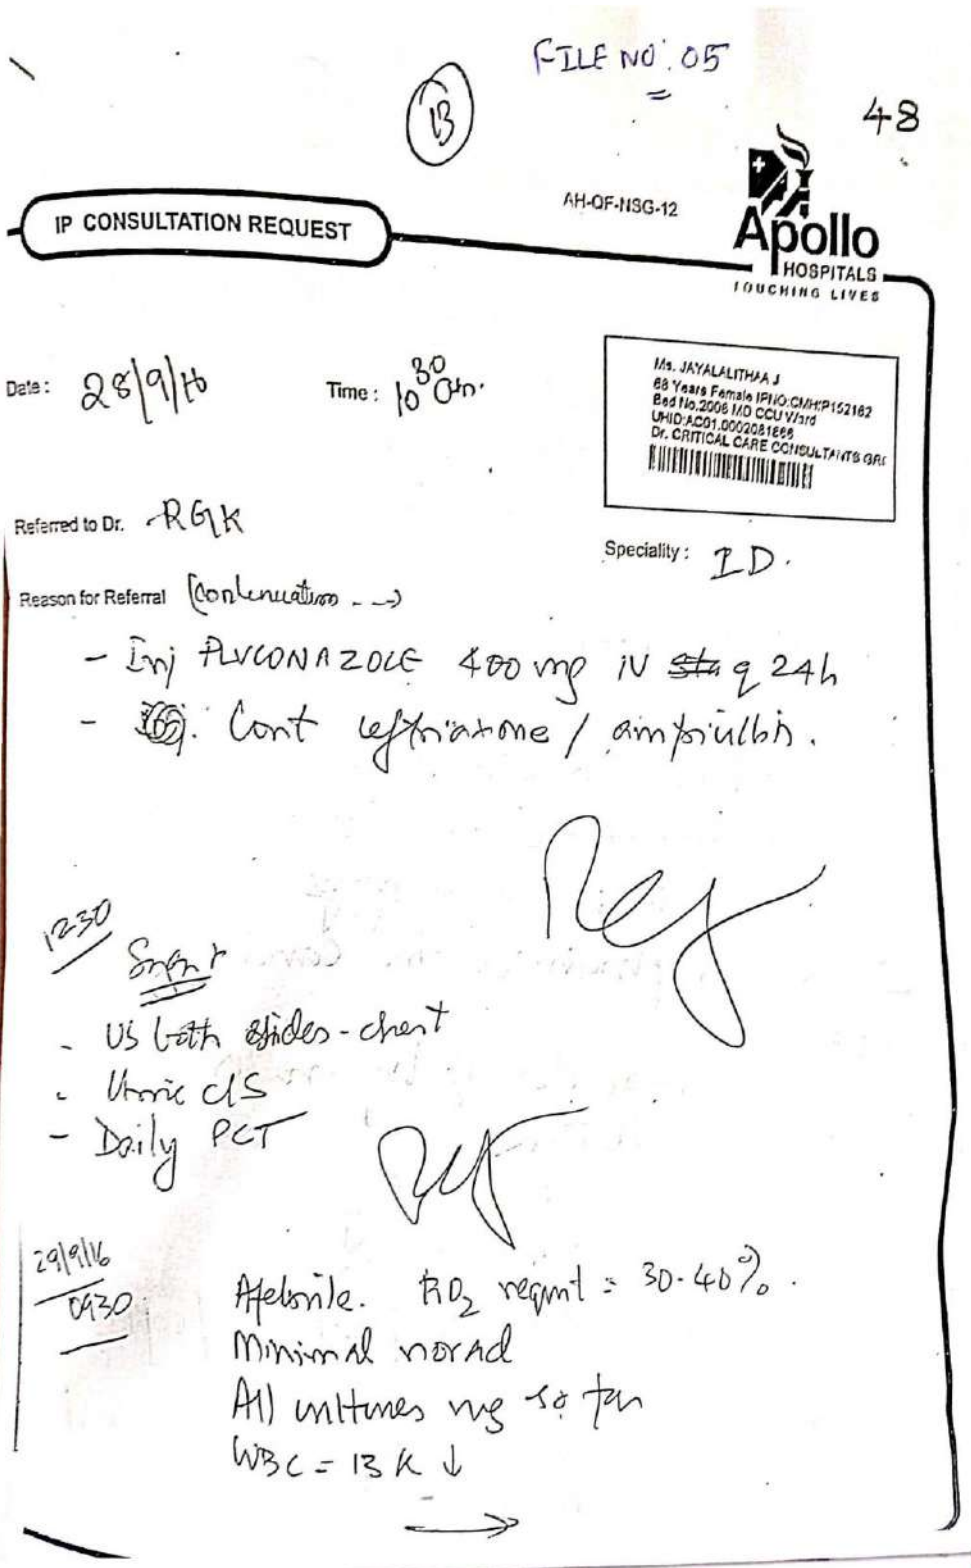 FILE NO: 05
13
48
AH-QF-NSG-12
IP CONSULTATION REQUEST
Apollo
HOSPITALS
TOUCHING LIVES
Date: 28/9/16
Time: 10 30 am.
Ms. JAYALALITHAA J
68 Years Female IPNO:CMH:P152162
Bed No.2008 MD CCU Ward
UHID:AC01.0002081886
Dr. CRITICAL CARE CONSULTANTS GR
Referred to Dr. RGK
Speciality: ID.
Reason for Referral (Continuation --->)
- Inj FLUCONAZOLE 400 mg iv q 24h
- Cont ceftriaxone / ampicillin.
1230
- US both sides - chest
- Urine c/s
- Daily PCT
29/9/16
0930
Afebrile. FiO2 reqmt = 30-40%.
Minimal norad
All cultures neg so far
WBC = 13 K ↓
→